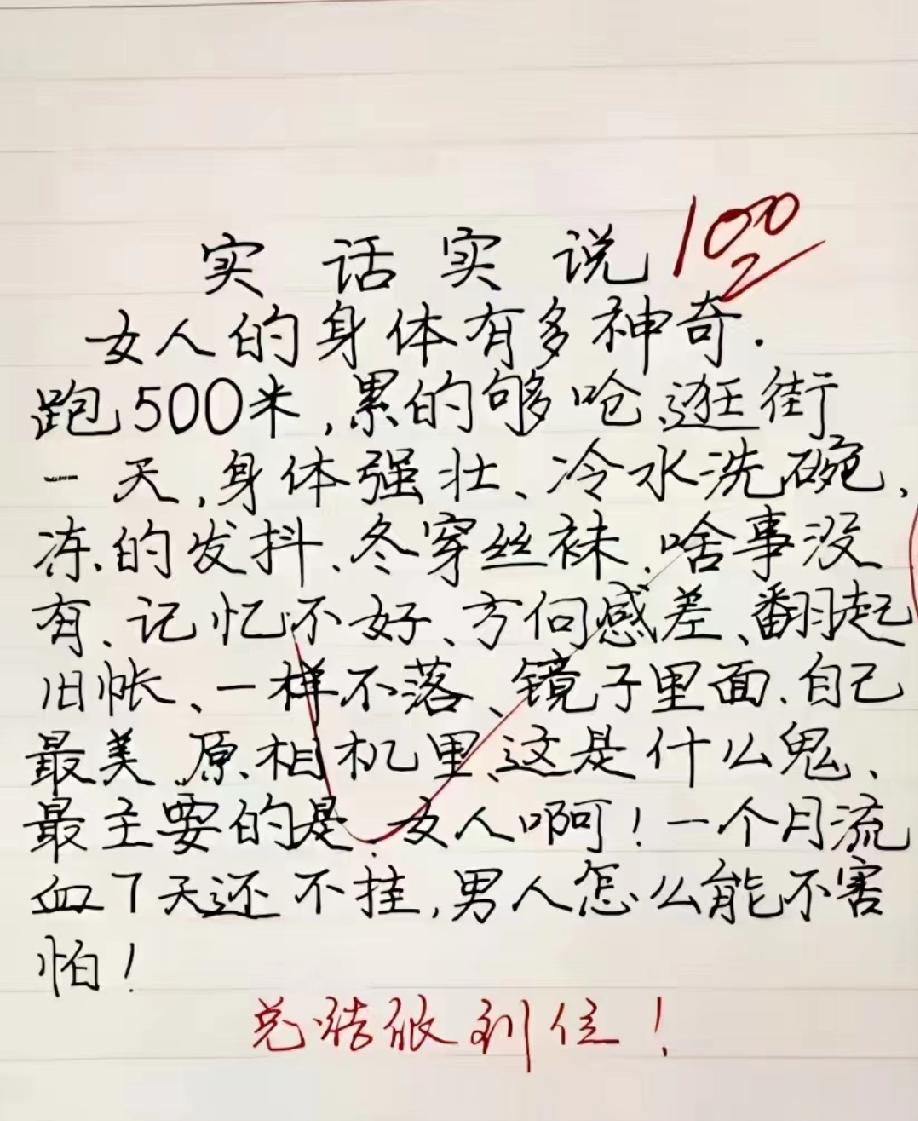 实话实说 100
女人的身体有多神奇.
跑500米,累的够呛、逛街
一天,身体强壮、冷水洗碗,
冻的发抖、冬穿丝袜、啥事没
有、记忆不好、方向感差、翻起
旧帐、一样不落、镜子里面.自己
最美、原相机里、这是什么鬼、
最主要的是.女人啊!一个月流
血7天还不挂,男人怎么能不害
怕!
总结很到位!